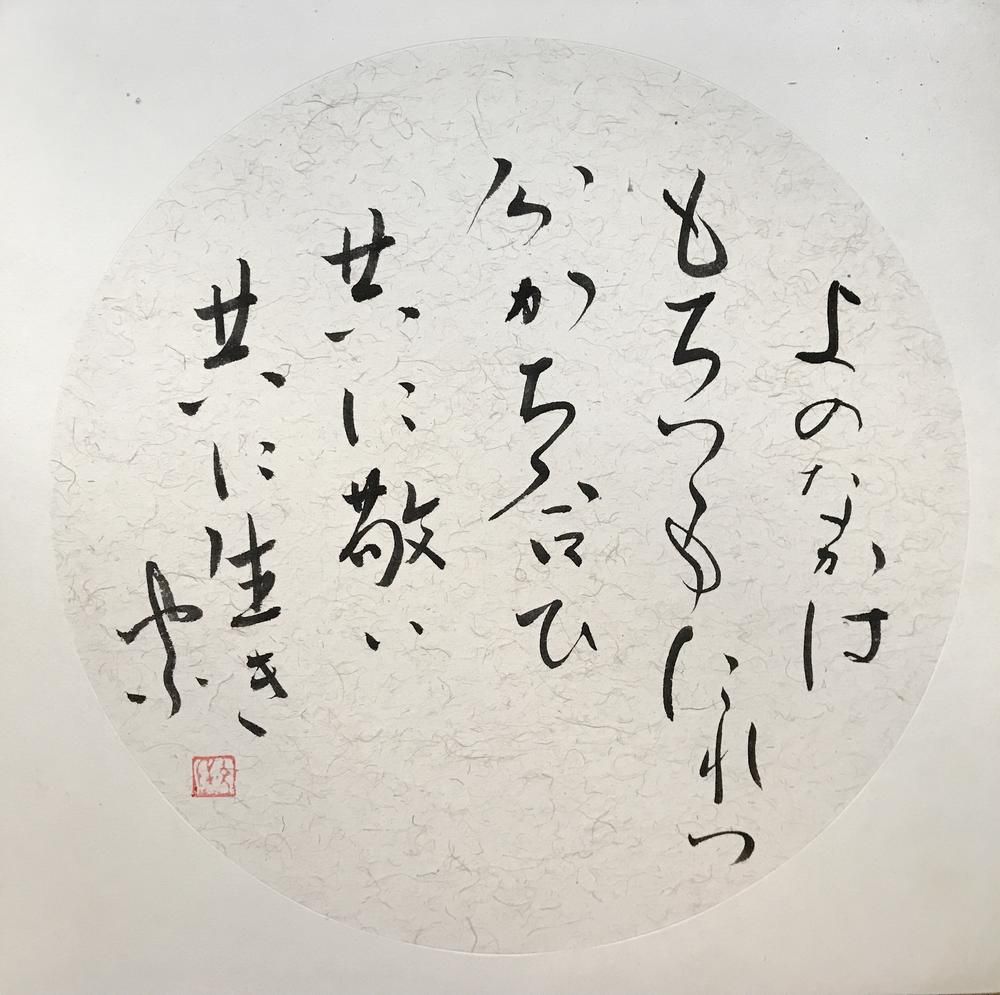 よのなかは
もちつもたれつ
分かち合ひ
共に敬い
共に生き